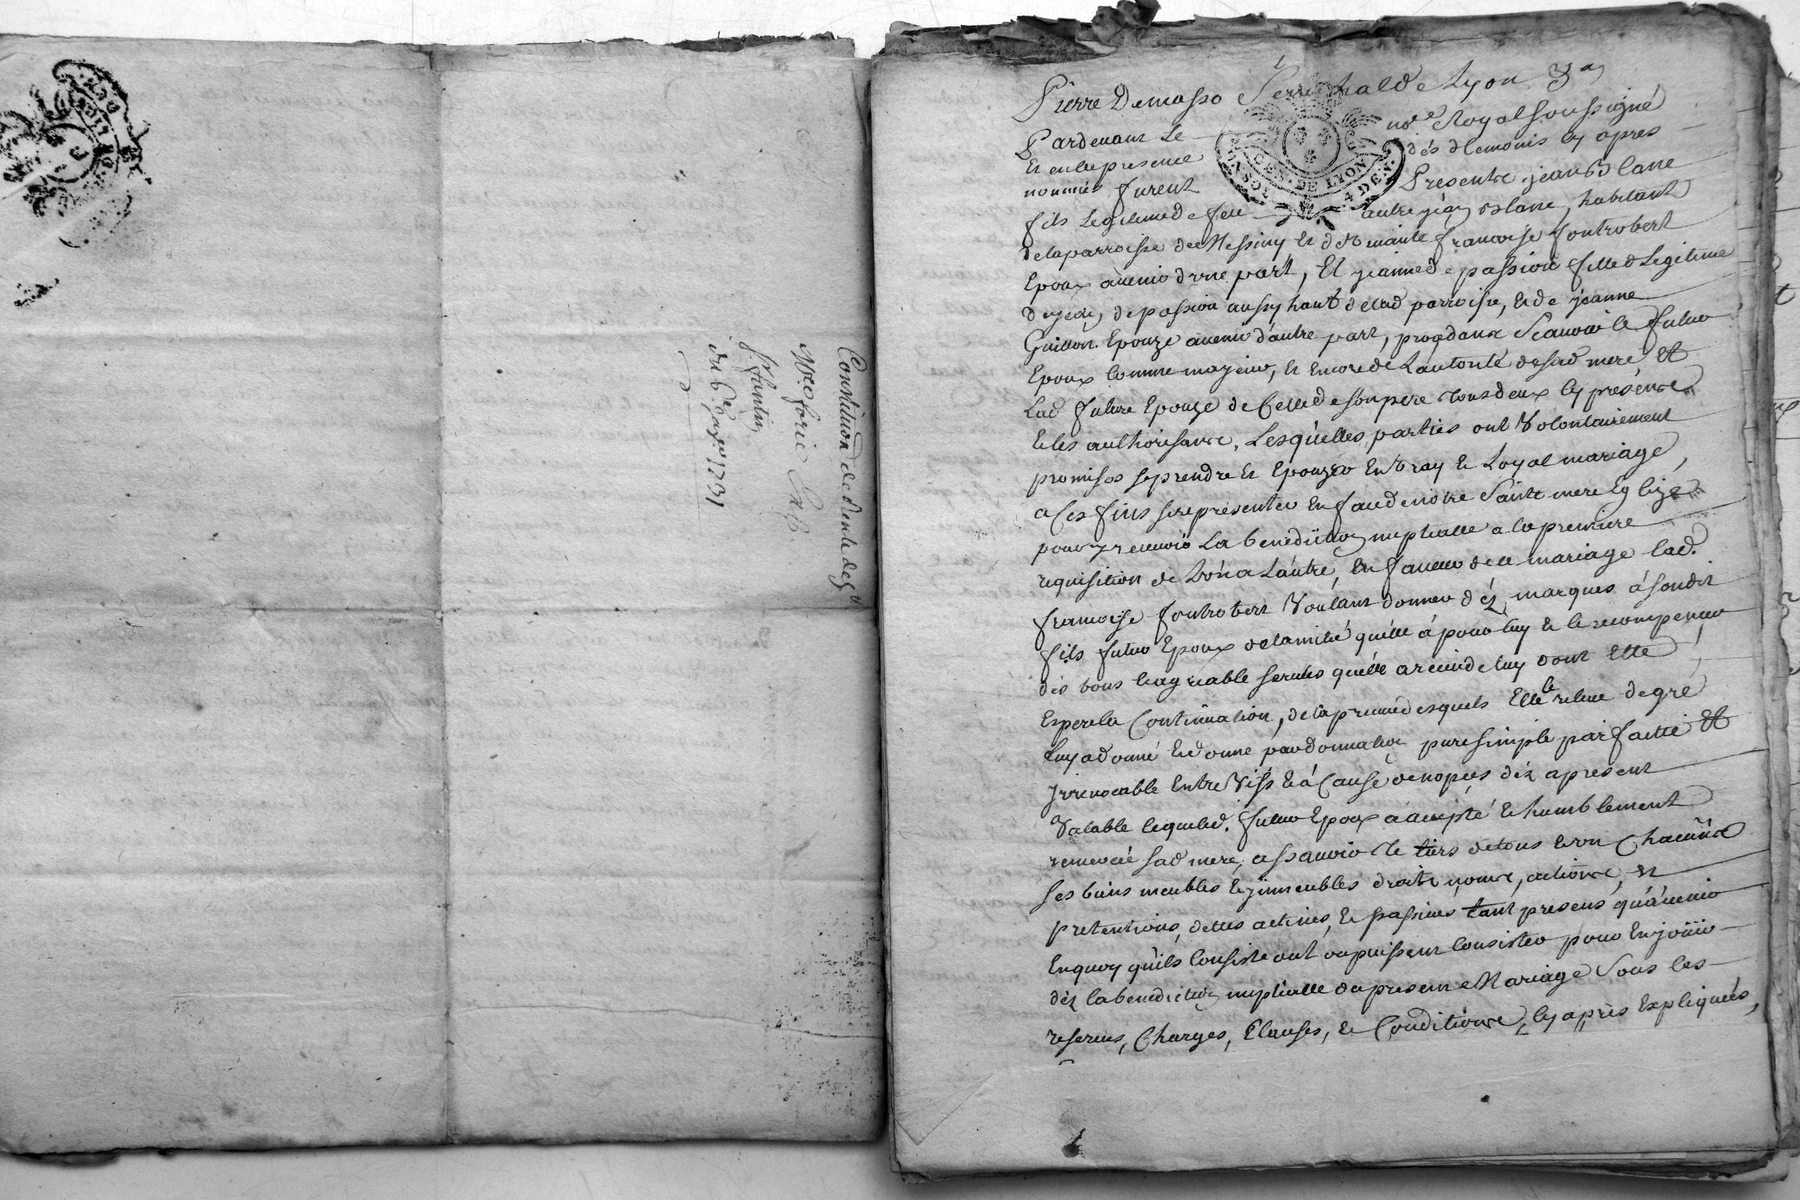 Constitution de Rente de
du 6e 1731
Pierre Demasso Senechal de Lyon
Pardevant Le no.re Royal soussigné
Et en la presence dés temoins cy apres
nommés furent Presents jean Blanc
fils Legitime de feu autre jean Blanc, habitant
de la parroisse de Messimy Et de vivante francoise fontrobert
Epoux avenir d'une part, Et jeanne depassion fille Legitime
de jean depassion aussy habt de lad parroisse, Et de jeanne
Guillon Epouze avenir d'autre part, procedans Scavoir le futur
Epoux comme majeur, et encore de Lautorité de sad mere, Et
Lad future Epouze de Celle de son pere tous deux cy présents
Et les authorisants, Lesquelles parties ont Volontairement
promises se prendre Et Epouzer En vray Et Loyal mariage,
a Ces fins se représenter En face de notre Sainte mere Eglize
pour y recevoir La benediction nuptialle a la premiere
requisition de L'un a L'autre, En faveur de ce mariage lad.
francoise fontrobert Voulant donner déz marques à son dit
fils futur Epoux de lamitié qu'elle à pour luy Et le recompenser
dés bons Et agreable services qu'elle a receu de luy dont Elle
Espere la Continuation, de la preuve desquels Elle le releve de gré
Luy a donné Et donne par donnation pure simple parfaitte Et
jrrevocable Entre Vifs Et à Cause de nopces déz apresent
Valable lequel ed. futur Epoux a accepté Et humblement
remercié sad mere, assavoir Le tiers de tous Et un Chacuns
ses biens meubles Et jmmeubles droits, noms, actions, Et
pretentions, dettes actives, Et passives tant presens qu'avenir
En quoy qu'ils Consistent ou puissent Consister pour En joüir
déz la benediction nuptialle du present Mariage Sous les
reserves, Charges, Clauses, Et Conditions, cy après Expliquées,
GEN. DE LYON
4 DEN.